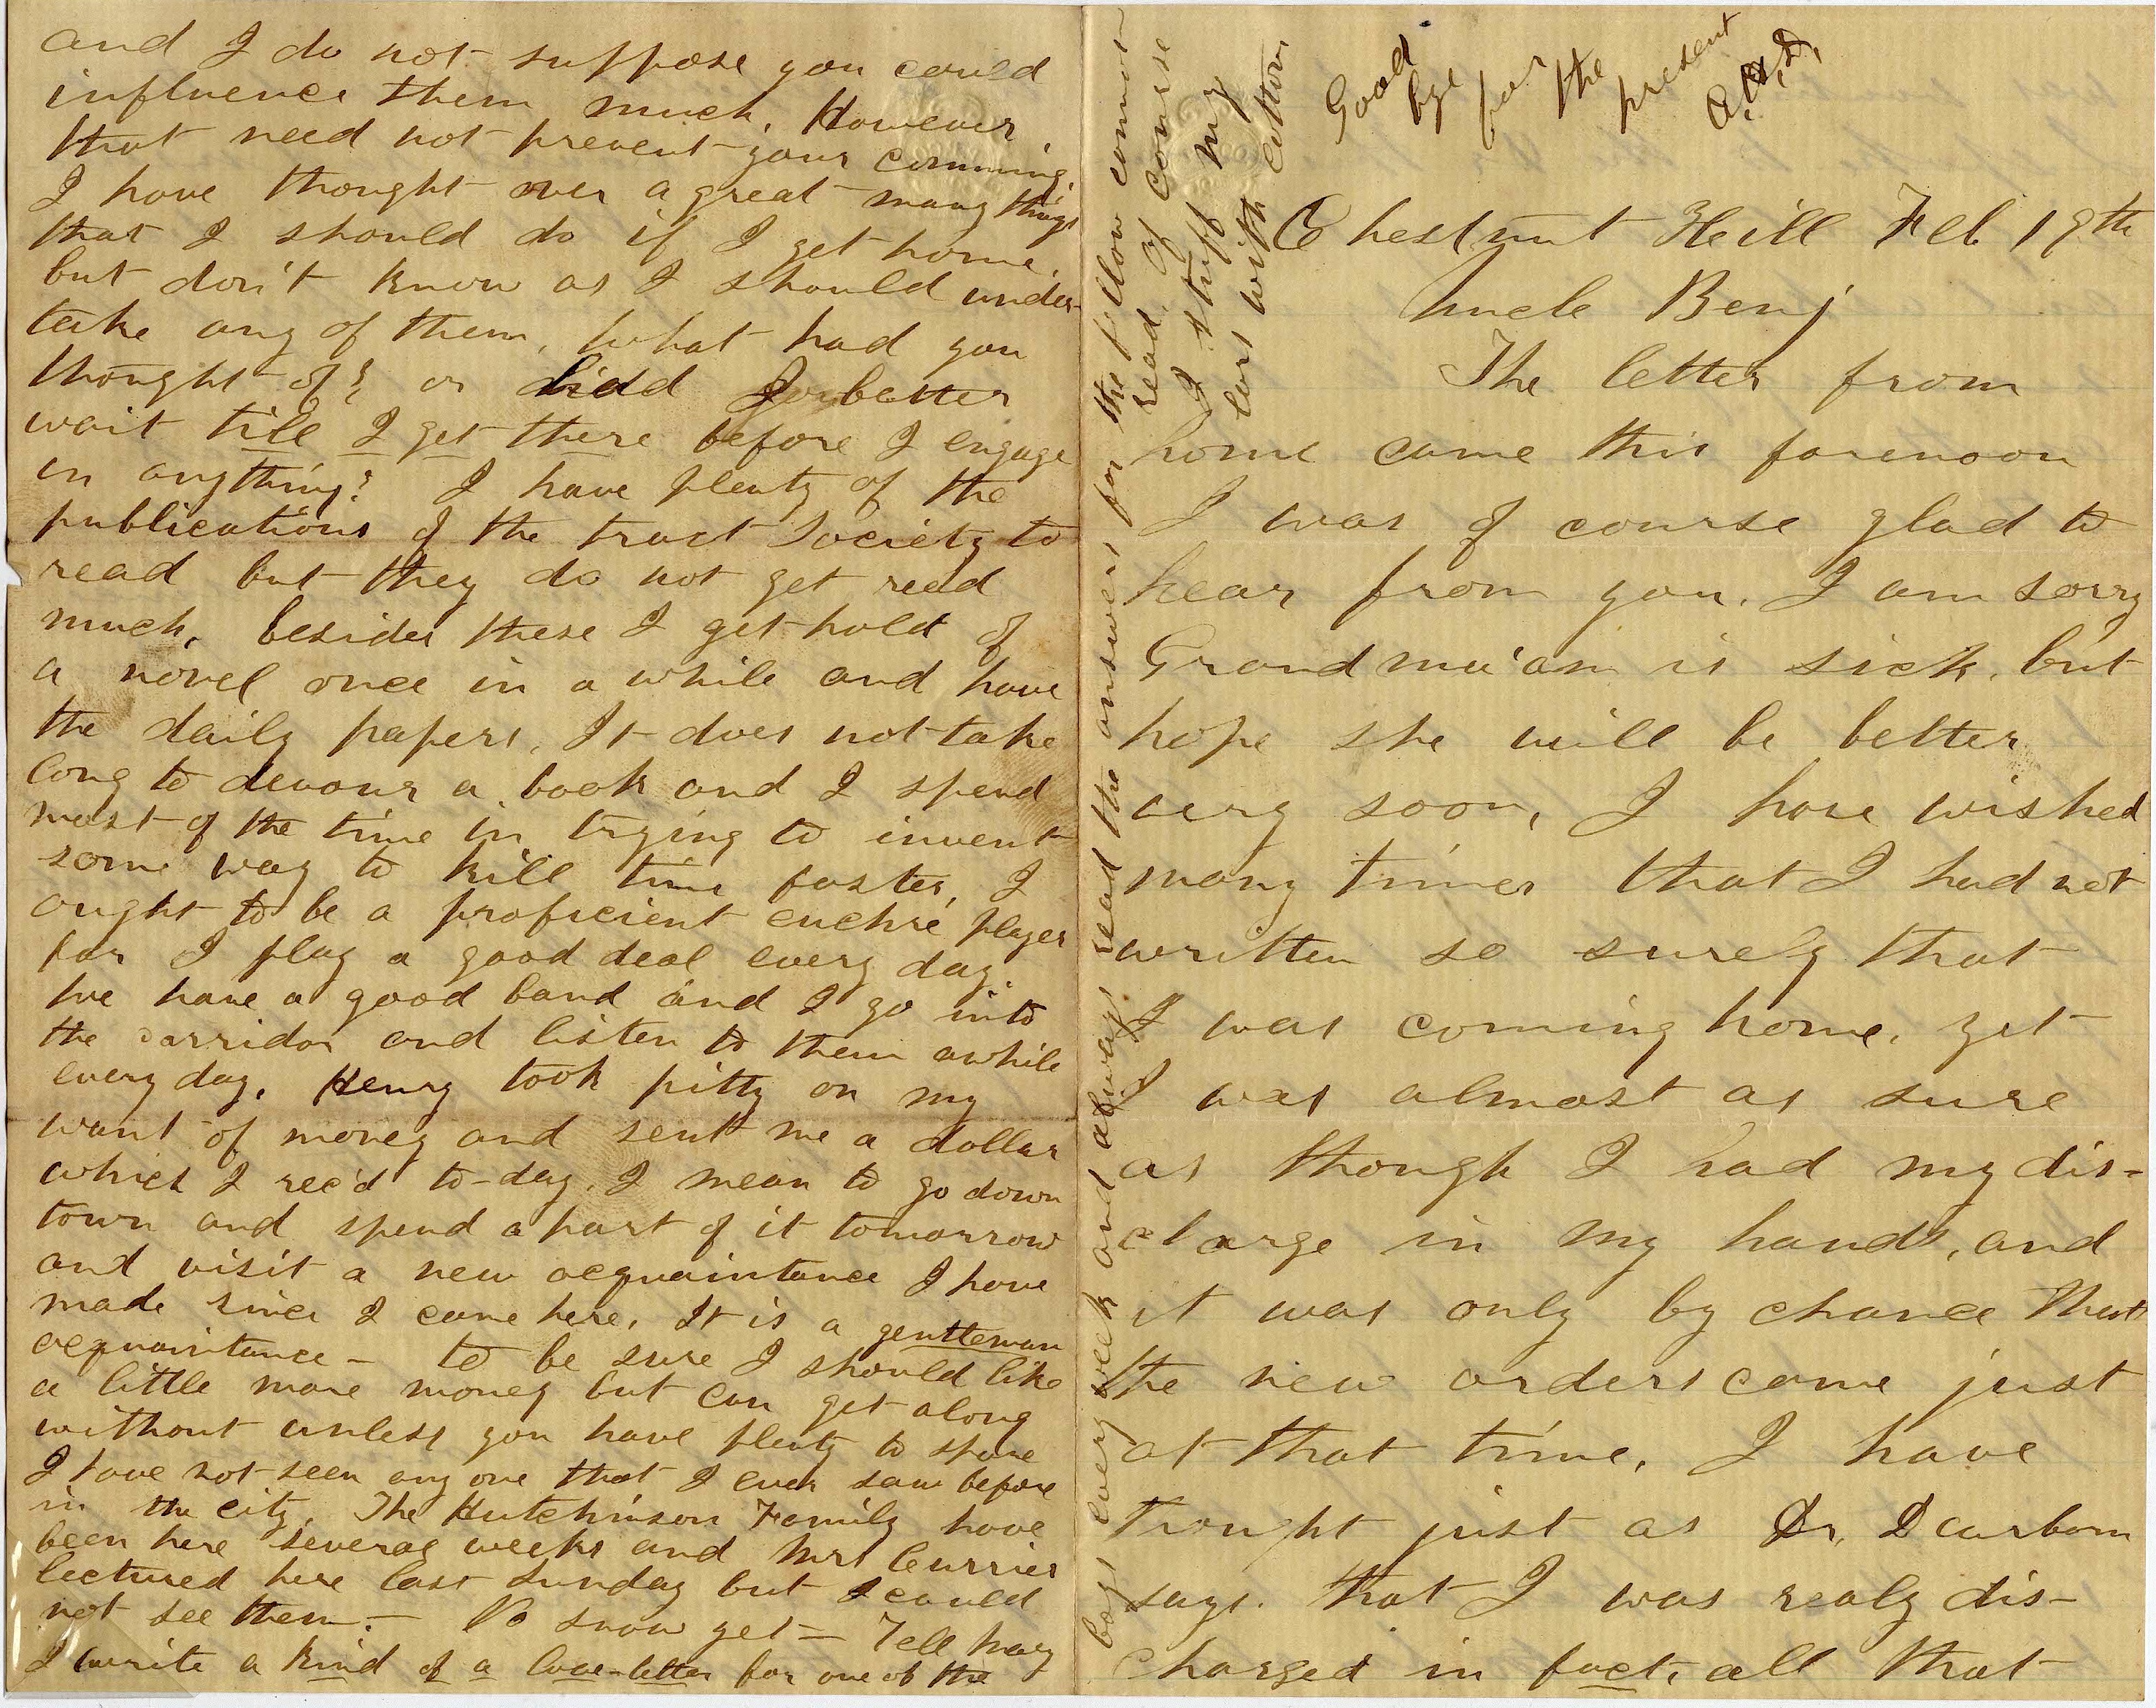 Chestnut Hill Feb 19th
Uncle Benj
The letter from
home came this forenoon
I was of course glad to
hear from you. I am sorry
Grandma'am is sick, but
hope she will be better
very soon, I have wished
many times that I had not
written so surely that
I was coming home. yet
I was almost as sure
as though I had my dis-
charge in my hands, and
it was only by chance that
the new orders came just
at that time. I have
thought just as Dr. Dearborn
says. that I was realy dis-
charged in fact, all that
and I do not suppose you could
influence them much. However
that need not prevent your comming.
I have thought over a great many things
that I should do if I get home.
but don't know as I should under-
take any of them, What had you
thought of? or had I better
wait till I get there before I engage
in anything? I have plenty of the
publications of the tract Society to
read but they do not get read
much, besides these I get hold of
a novel once in a while and have
the daily papers, It does not take
long to devour a book and I spend
most of the time in trying to invent
some way to kill time faster, I
ought to be a proficient euchre player
for I play a good deal every day.
We have a good band and I go into
the corridor and listen to them awhile
every day. Henry took pitty on my
want of money and sent me a dollar
which I rec'd to-day. I mean to go down
town and spend a part of it tomorrow
and visit a new acquaintance I have
made since I came here. It is a gentleman
acquaintance - to be sure I should like
a little more money but can get along
without unless you have plenty to spare
I have not seen any one that I ever saw before
in the city. The Hutchinson Family have
been here several weeks and Mrs Currier
lectured here last Sunday but I could
not see them. - No snow yet - Tell
I write a kind of a love-letter for one of the
boys every week and always read the answers for the fellow cannot
read, of course
I stuff my
ears with cotton,
Good
bye
for
the
present